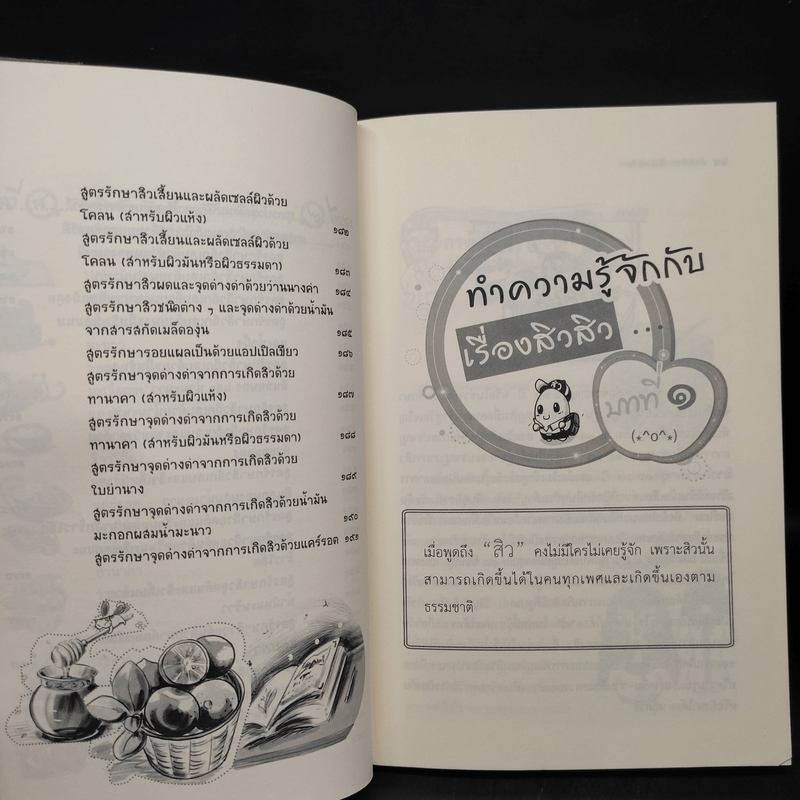 สูตรรักษาสิวเสี้ยนและผลัดเซลล์ผิวด้วย
โคลน (สำหรับผิวแห้ง) ๑๘๒
สูตรรักษาสิวเสี้ยนและผลัดเซลล์ผิวด้วย
โคลน (สำหรับผิวมันหรือผิวธรรมดา) ๑๘๓
สูตรรักษาสิวผดและจุดด่างดำด้วยว่านนางคำ ๑๘๔
สูตรรักษาสิวชนิดต่าง ๆ และจุดด่างดำด้วยน้ำมัน
จากสารสกัดเมล็ดองุ่น ๑๘๕
สูตรรักษารอยแผลเป็นด้วยแอปเปิลเขียว ๑๘๖
สูตรรักษาจุดด่างดำจากการเกิดสิวด้วย
ทานาคา (สำหรับผิวแห้ง) ๑๘๗
สูตรรักษาจุดด่างดำจากการเกิดสิวด้วย
ทานาคา (สำหรับผิวมันหรือผิวธรรมดา) ๑๘๘
สูตรรักษาจุดด่างดำจากการเกิดสิวด้วย
ใบย่านาง ๑๘๙
สูตรรักษาจุดด่างดำจากการเกิดสิวด้วยน้ำมัน
มะกอกผสมน้ำมะนาว ๑๙๐
สูตรรักษาจุดด่างดำจากการเกิดสิวด้วยแคร์รอต ๑๙๑
ทำความรู้จักกับ
เรื่องสิวสิว ...
บทที่ ๑
(⋆^o^⋆)
เมื่อพูดถึง “สิว” คงไม่มีใครไม่เคยรู้จัก เพราะสิวนั้น
สามารถเกิดขึ้นได้ในคนทุกเพศและเกิดขึ้นเองตาม
ธรรมชาติ